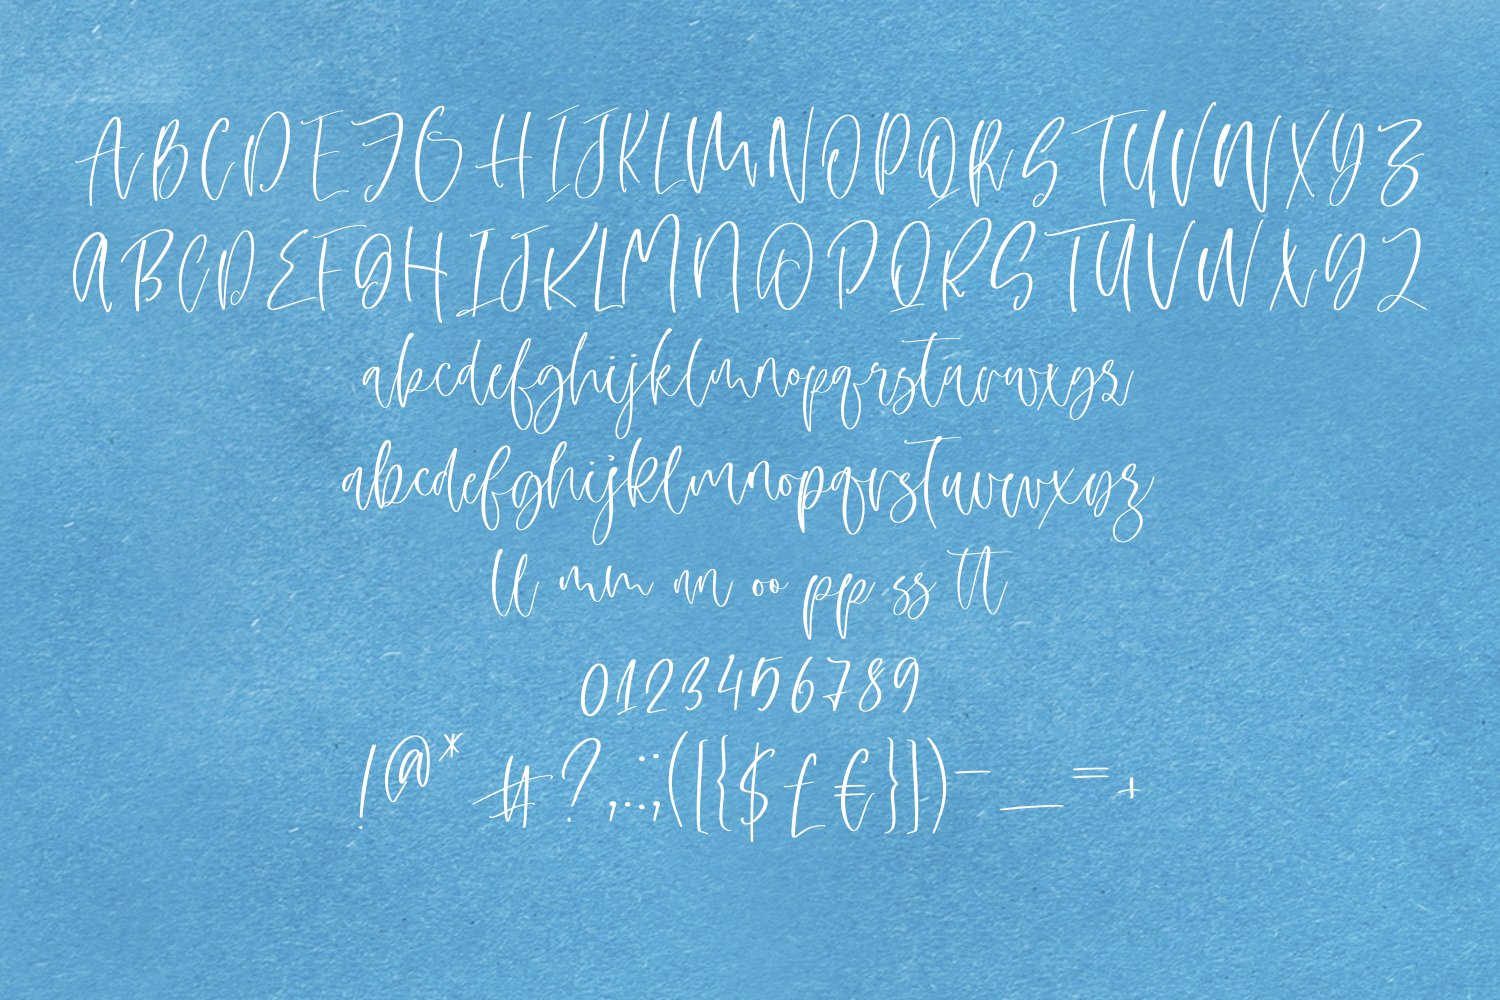 ABCDEFGHIJKLMNOPQRSTUVWXYZ
ABCDEFGHIJKLMNOPQRSTUVWXYZ
abcdefghijklmnopqrstuvwxyz
abcdefghijklmnopqrstuvwxyz
ll mm nn oo pp ss tt
0123456789
!@* #?,..:;([{$£€}])-_=+